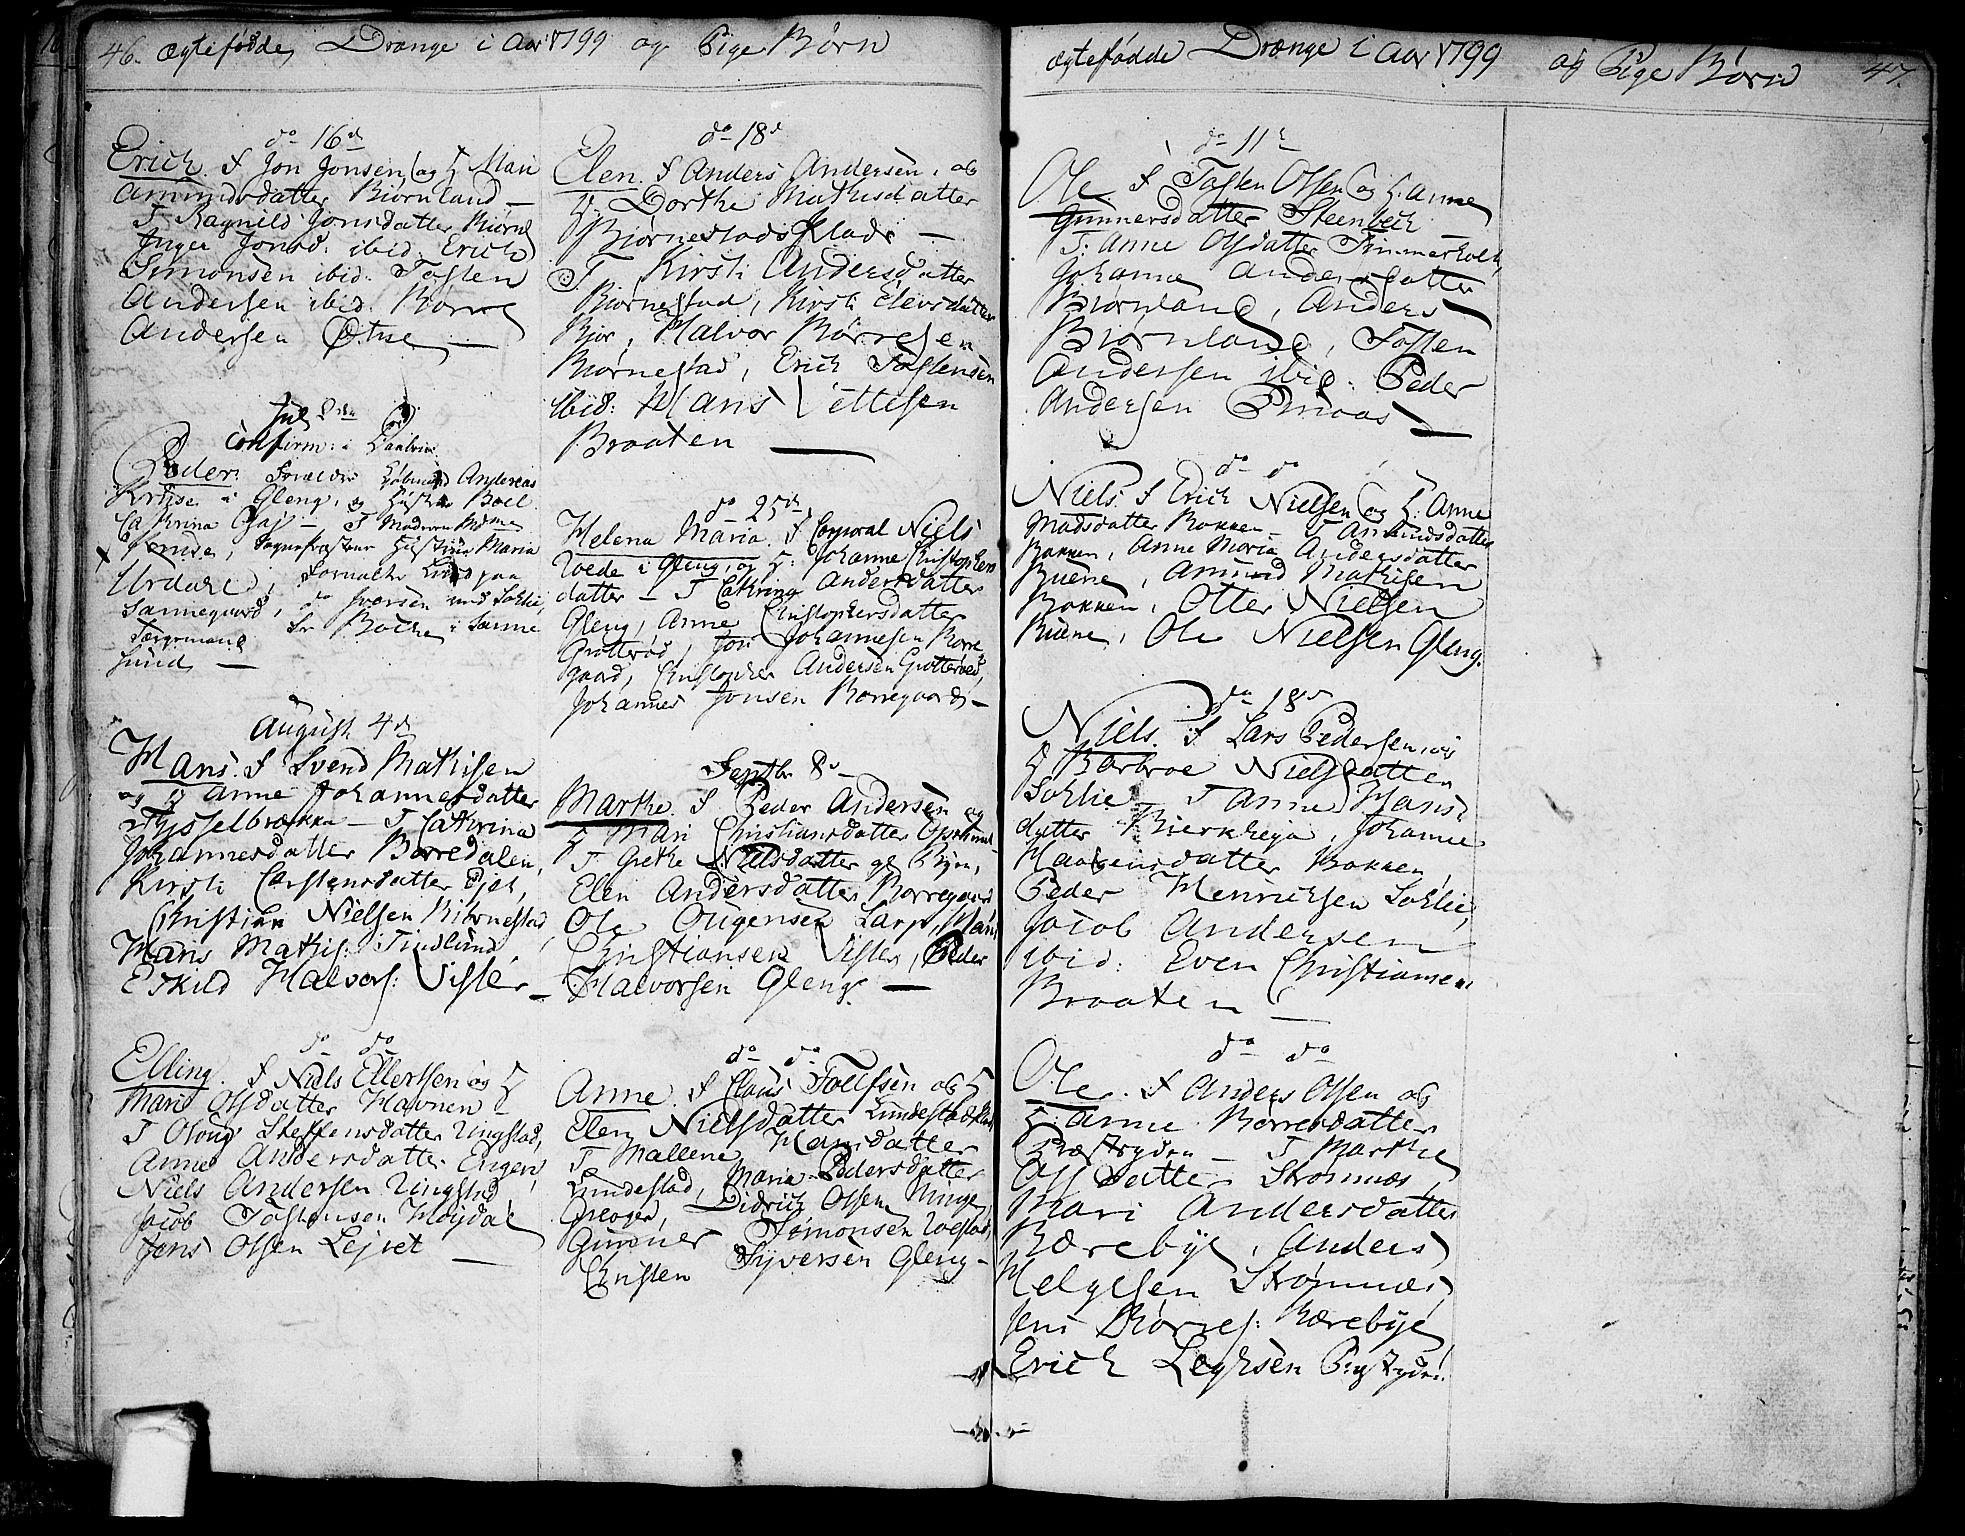 46. ægtefødde Drenge i Aar 1799 og Pige Børn
do 16de
Erich. F Jon Jonsen og H Mari
Amundsdatter Biørnland —
T Ragnild Jonsdatter Biørnl
Inger Jonsd. ibid. Erich
Simonsen ibid. Tosten
Andersen ibid. Børre
Andersen Othne —
Jul
Confirm: i
Peder: Forældre Andreas
Kruse i Gleng, og Hustrue Boel
Cathrina T Madame
Hustrue Maria
Urdahl, paa
Sannegaard, do Iversen ved Sohlie,
Sr Bothe i Sanne
Færgemand
Sund —
August 4de
Hans. F Svend Mathisen
og H Anne Johannesdatter
Thysselbrække — T Cathrina
Johannesdatter Borredalen,
Kirsti Carstensdatter
Christian Nielsen Biørnestad,
Hans Mathis: Tindlund,
Eskild Halvors: Visler —
do do
Elling. F Niels Ellertsen og H
Mari Olsdatter Havnen
T Oloug Steffensdatter Ringstad,
Anne Andersdatter Engen,
Niels Andersen Ringstad
Jacob Tostensen Høydal
Jens Olsen Lejret —
do 18d
Elen. F Anders Andersen, og
H. Dorthe Mathisdatter
Biørnestads Plads —
T Kirsti Andersdatter
Biørnestad, Kirsti Elevsdatter
Bjor, Halvor Børresen
Biørnestad, Erich Tostensen
ibid: Hans Vettesen
Braaten —
do 25de
Helena Maria. F Corporal Niels
Woede i Gleng, og H: Johanne Christophers
datter — T Cathrina Andersdatter
Gleng, Anne Christophersdatter
Grotterød, Jon Johannesen Borre
gaard, Christopher Andersen Grotterød,
Johannes Jonsen Borregaard —
Septbr 8de
Marthe. F Peder Andersen og
H Mari Christiansdatter Opsund
T Grethe Nielsdatter gl Byen,
Elen Andersdatter Borregaard
Ole Ougensen Larp, Hans
Christiansen Visler, Peder
Halvorsen Gleng —
do do
Anne. F Claus Toelfsen og H
Elen Nielsdatter Lundestad
T Mallene Hansdatter
Lundestad, Maria Pedersdatter
Greager, Didrich Olsen Ringe,
Gunner Simonsen Woestad,
Christen Syversen Gleng —
ægtefødde Drenge i Aar 1799 og Pige Børn 47.
do 11te
Ole F Tosten Olsen og H. Anne
Gunnersdatter Steenbech
T: Anne Olsdatter Timmerholt,
Johanne Andersdatter
Biørnland, Anders
Biørnland, Tosten
Andersen ibid: Peder
Andersen Pinaas —
do do
Niels. F Erich Nielsen og H: Anne
Madsdatter Bakken T Amundsdatter
Bakken, Anne Maria Andersdatter
Buene, Amund Mathisen
Bakken, Otter Nielsen
Buene, Ole Nielsen Gleng.
do 18de
Niels. F Lars Pedersen, og
H Barbroe Nielsdatter
Sohlie T Anne Hans
datter Bierkhøja, Johanne
Haagensdatter Bakken,
Peder Henrichsen Sohlie,
Jacob Andersen
ibid: Even Christiansen
Braaten —
do do
Ole. F Anders Olsen og
H. Anne Børresdatter
T Marthe
Olsdatter Strømnes,
Mari Andersdatter
Kærebye, Anders
Helgesen Strømnes,
Jens Børres: Kærebye,
Erich